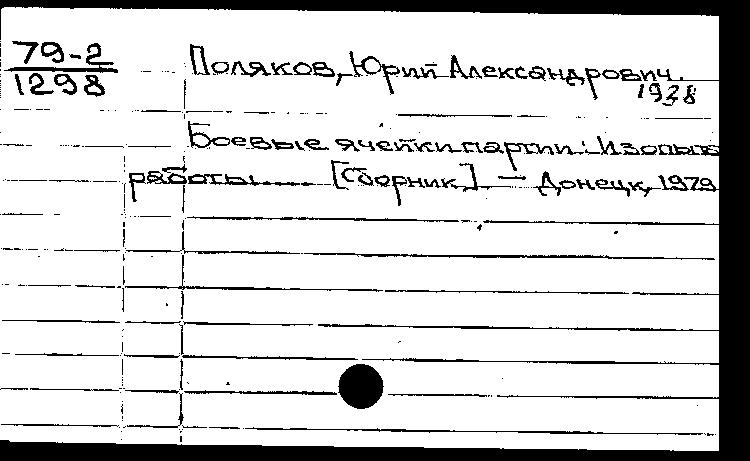 79-2
1298
Поляков, Юрий Александрович.
1928
Боевые ячейки партии: Из опыта
работы..... [Сборник]. — Донецк, 1979